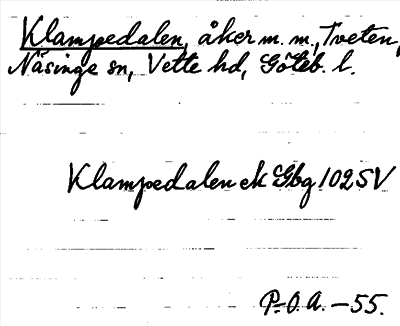 Klampedalen, åker m. m., Tveten,
Näsinge sn, Vette hd, Göteb. l.
Klampedalen ek Gbg 1025 V
P.-O. A. – 55.